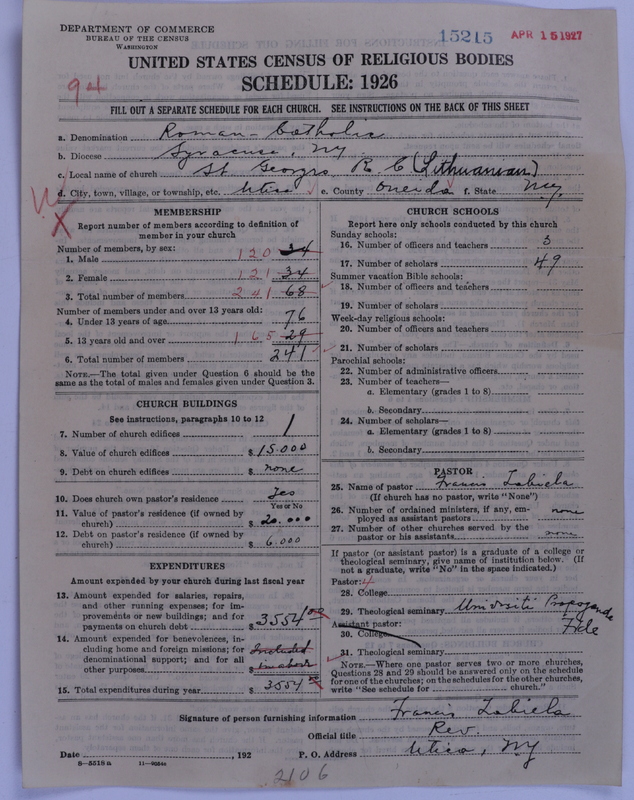 DEPARTMENT OF COMMERCE
BUREAU OF THE CENSUS
WASHINGTON
15215
APR 15 1927
UNITED STATES CENSUS OF RELIGIOUS BODIES
SCHEDULE: 1926
94
FILL OUT A SEPARATE SCHEDULE FOR EACH CHURCH. SEE INSTRUCTIONS ON THE BACK OF THIS SHEET
a. Denomination Roman-Catholic
b. Diocese Syracuse, NY
c. Local name of church St Georgis R. C (Lithuanian)
d. City, town, village, or township, etc. Utica e. County Oneida f. State NY.
MEMBERSHIP
Report number of members according to definition of member in your church
Number of members, by sex:
1. Male 120 34
2. Female 121 34
3. Total number of members 241 68
Number of members under and over 13 years old:
4. Under 13 years of age 76
5. 13 years old and over 165 29
6. Total number of members 241
NOTE.—The total given under Question 6 should be the
same as the total of males and females given under Question 3.
CHURCH BUILDINGS
See instructions, paragraphs 10 to 12
7. Number of church edifices 1
8. Value of church edifices $ 15.000
9. Debt on church edifices $ none
10. Does church own pastor's residence Yes
Yes or No
11. Value of pastor's residence (if owned by
church) $ 20.000
12. Debt on pastor's residence (if owned by
church) $ 6.000
EXPENDITURES
Amount expended by your church during last fiscal year
13. Amount expended for salaries, repairs,
and other running expenses; for im-
provements or new buildings; and for
payments on church debt $ 3554
14. Amount expended for benevolences, in-
cluding home and foreign missions; for
denominational support; and for all
other purposes $ Included in above
15. Total expenditures during year $ 3554
CHURCH SCHOOLS
Report here only schools conducted by this church
Sunday schools:
16. Number of officers and teachers 3
17. Number of scholars 49
Summer vacation Bible schools:
18. Number of officers and teachers
19. Number of scholars
Week-day religious schools:
20. Number of officers and teachers
21. Number of scholars
Parochial schools:
22. Number of administrative officers
23. Number of teachers—
a. Elementary (grades 1 to 8)
b. Secondary
24. Number of scholars—
a. Elementary (grades 1 to 8)
b. Secondary
PASTOR
25. Name of pastor Francis Zabiela
(If church has no pastor, write "None")
26. Number of ordained ministers, if any, em-
ployed as assistant pastors none
27. Number of other churches served by the
pastor or his assistants none
If pastor (or assistant pastor) is a graduate of a college or
theological seminary, give name of institution below. (If
not a graduate, write "No" in the space indicated.)
Pastor: 4
28. College
29. Theological seminary Universiti Propoganda
Fide
Assistant pastor:
30. College
31. Theological seminary
NOTE.—Where one pastor serves two or more churches,
Questions 28 and 29 should be answered only on the schedule
for one of the churches; on the schedules for the other churches,
write "See schedule for church."
Signature of person furnishing information Francis Zabiela
Official title Rev.
Date , 192 P. O. Address Utica, NY
8-5518a 11-9054a
2106